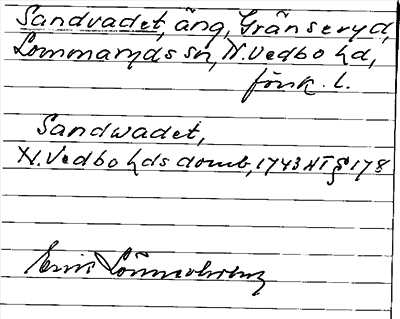 Sandvadet, äng, Gränseryd,
Lommaryds sn, N. Vedbo hd,
försk. l.
Sandwadet,
N. Vedbo hds domb, 1743 HT § 178